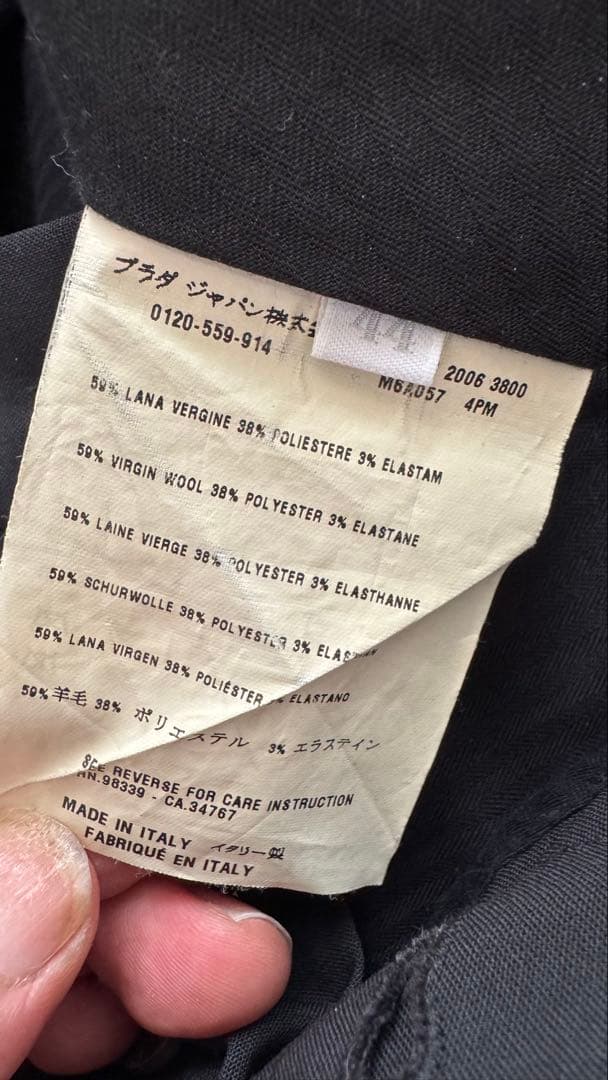 プラダ ジャパン株式
0120-559-914
44
2006 3800
M6A057 4PM
59% LANA VERGINE 38% POLIESTERE 3% ELASTAM
59% VIRGIN WOOL 38% POLYESTER 3% ELASTANE
59% LAINE VIERGE 38% POLYESTER 3% ELASTHANNE
59% SCHURWOLLE 38% POLYESTER 3%
59% LANA VIRGEN 38% POLIÉSTER % ELASTANO
59% 羊毛 38% ポリエステル 3% エラスティン
SEE REVERSE FOR CARE INSTRUCTION
RN.98339 - CA.34767
MADE IN ITALY イタリー製
FABRIQUÉ EN ITALY